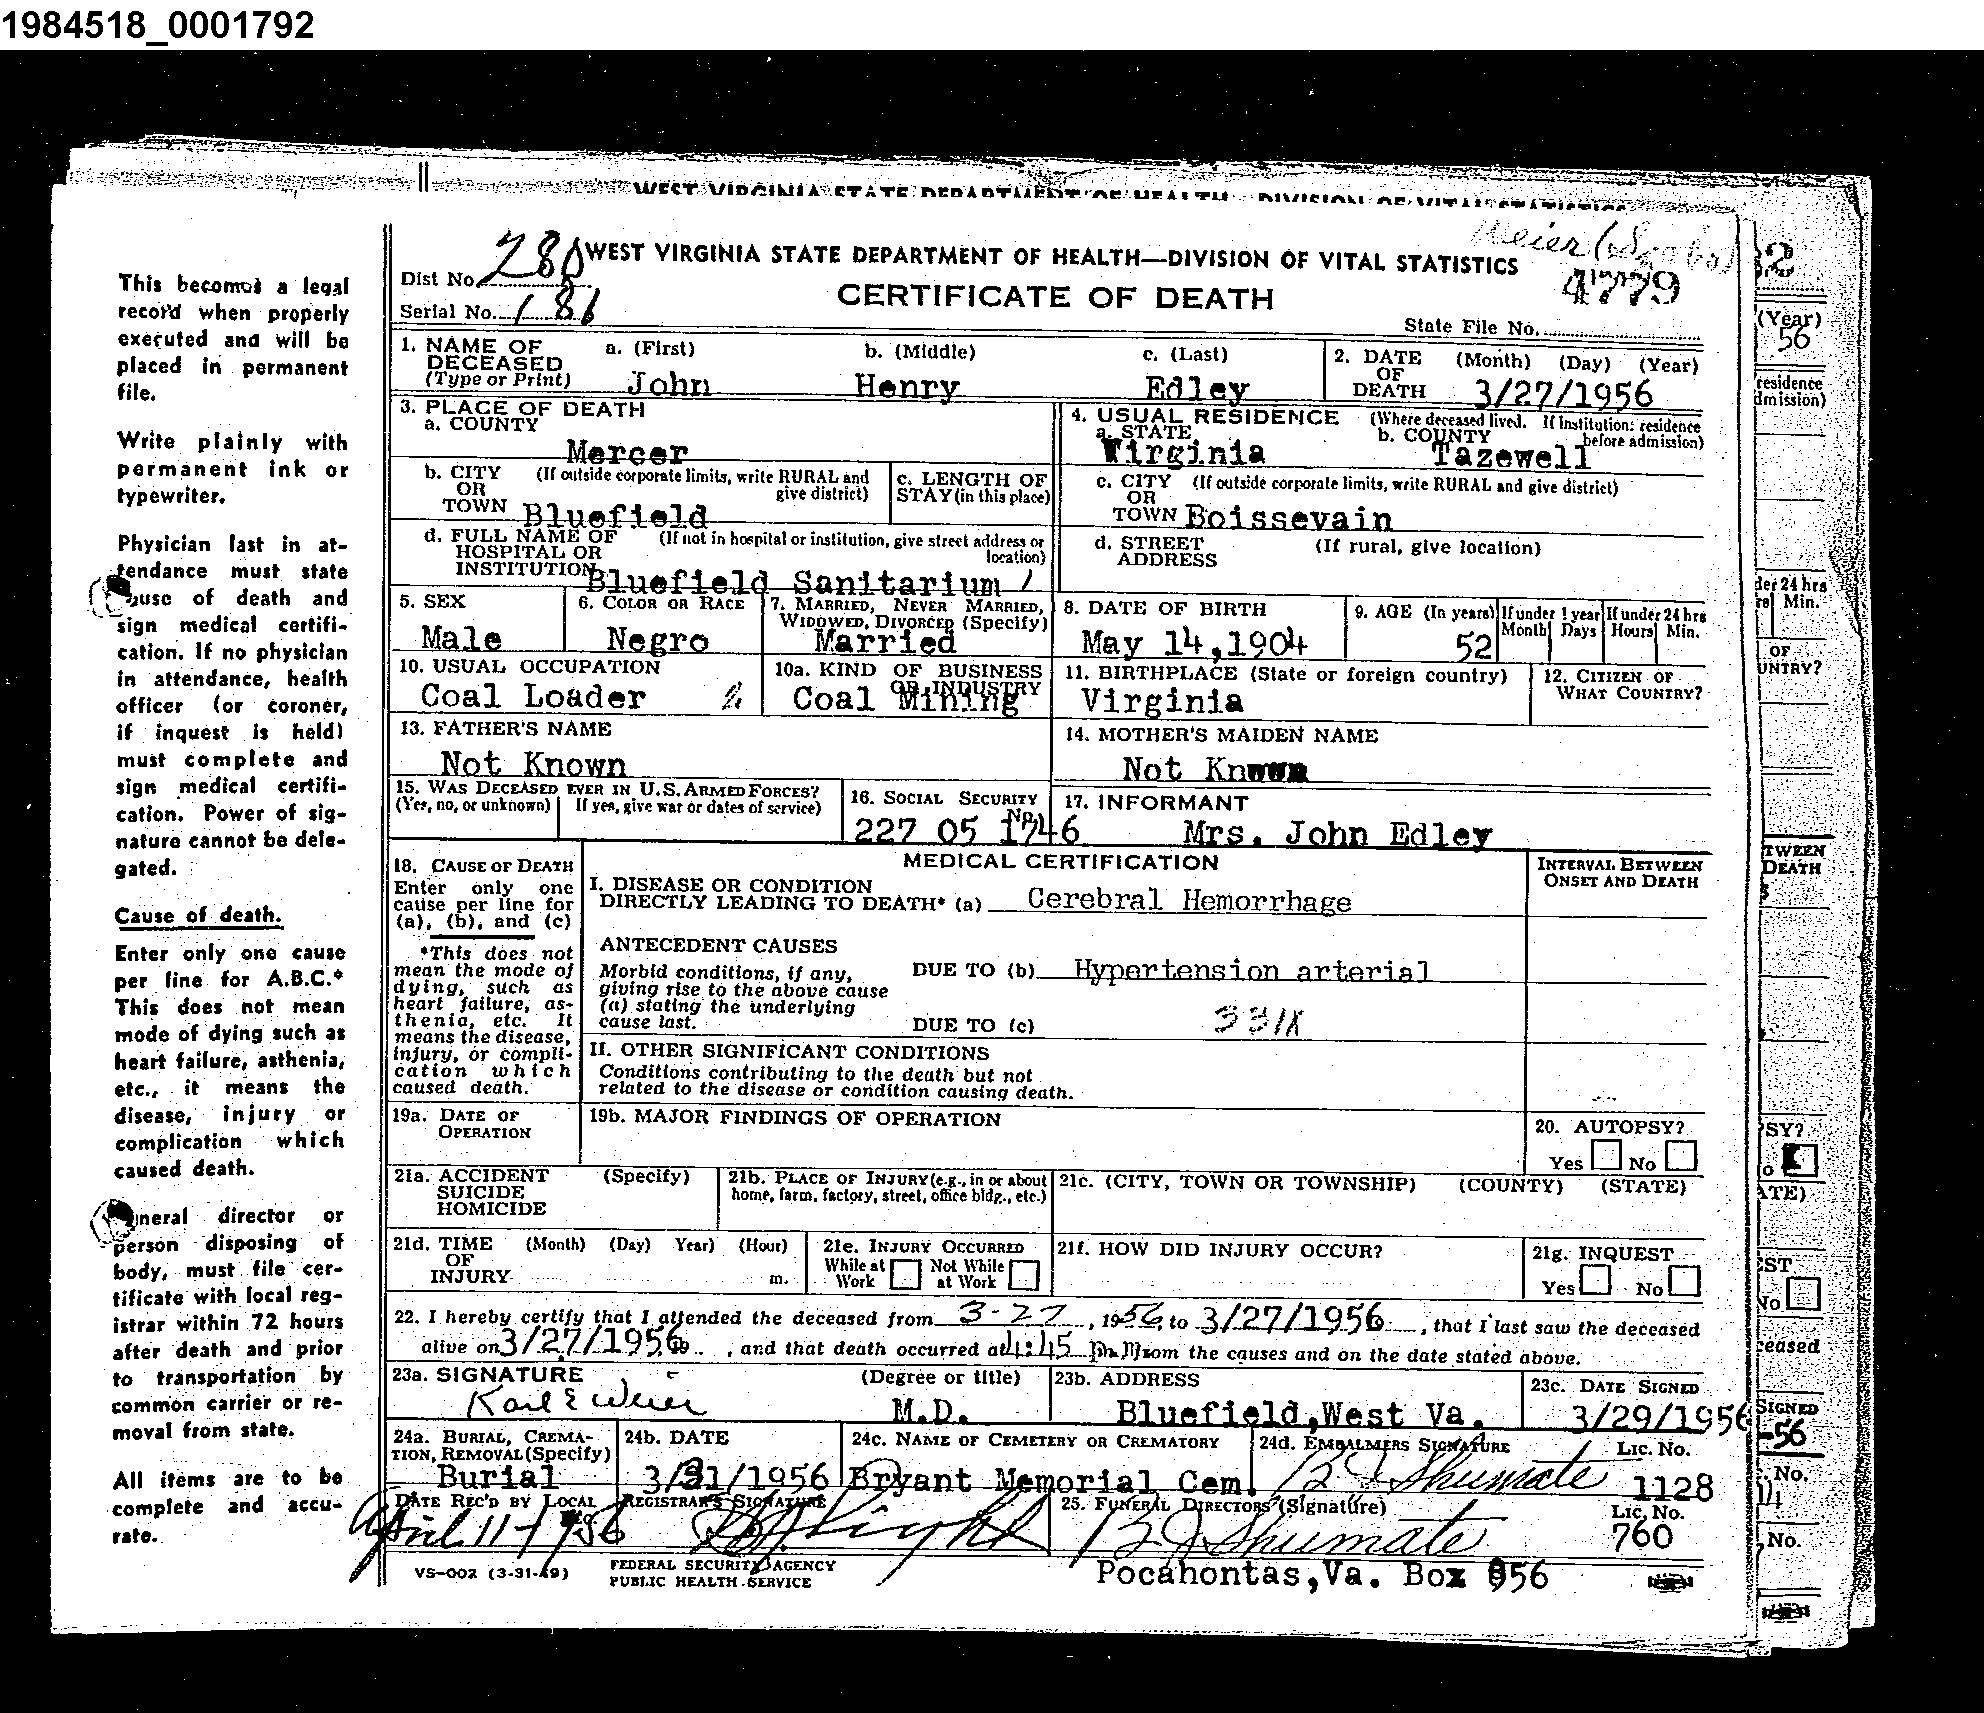 1984518_0001792
WEST VIRGINIA STATE DEPARTMENT OF HEALTH DIVISION OF VITAL STATISTICS
Meier (Szabo)
Dist No. 280 WEST VIRGINIA STATE DEPARTMENT OF HEALTH—DIVISION OF VITAL STATISTICS
4779
Serial No. 186 CERTIFICATE OF DEATH
State File No.
This becomes a legal
record when properly
executed and will be
placed in permanent
file.
Write plainly with
permanent ink or
typewriter.
Physician last in at-
tendance must state
cause of death and
sign medical certifi-
cation. If no physician
in attendance, health
officer (or coroner,
if inquest is held)
must complete and
sign medical certifi-
cation. Power of sig-
nature cannot be dele-
gated.
Cause of death.
Enter only one cause
per line for A.B.C.*
This does not mean
mode of dying such as
heart failure, asthenia,
etc., it means the
disease, injury or
complication which
caused death.
Funeral director or
person disposing of
body, must file cer-
tificate with local reg-
istrar within 72 hours
after death and prior
to transportation by
common carrier or re-
moval from state.
All items are to be
complete and accu-
rate.
1. NAME OF DECEASED (Type or Print) a. (First) b. (Middle) c. (Last)
John Henry Edley
2. DATE OF DEATH (Month) (Day) (Year)
3/27/1956
3. PLACE OF DEATH
a. COUNTY
Mercer
4. USUAL RESIDENCE (Where deceased lived. If Institution: residence before admission)
a. STATE Virginia b. COUNTY Tazewell
b. CITY OR TOWN (If outside corporate limits, write RURAL and give district)
Bluefield
c. LENGTH OF STAY (in this place)
c. CITY OR TOWN (If outside corporate limits, write RURAL and give district)
Boissevain
d. FULL NAME OF HOSPITAL OR INSTITUTION (If not in hospital or institution, give street address or location)
Bluefield Sanitarium 1
d. STREET ADDRESS (If rural, give location)
5. SEX
Male
6. COLOR OR RACE
Negro
7. MARRIED, NEVER MARRIED, WIDOWED, DIVORCED (Specify)
Married
8. DATE OF BIRTH
May 14,1904
9. AGE (In years) If under 1 year If under 24 hrs
Month Days Hours Min.
52
10. USUAL OCCUPATION
Coal Loader
10a. KIND OF BUSINESS OR INDUSTRY
Coal Mining
11. BIRTHPLACE (State or foreign country)
Virginia
12. CITIZEN OF WHAT COUNTRY?
13. FATHER'S NAME
Not Known
14. MOTHER'S MAIDEN NAME
Not Known
15. WAS DECEASED EVER IN U.S. ARMED FORCES?
(Yes, no, or unknown) If yes, give war or dates of service)
16. SOCIAL SECURITY No.
227 05 1746
17. INFORMANT
Mrs. John Edley
18. CAUSE OF DEATH
Enter only one
cause per line for
(a), (b), and (c)
*This does not
mean the mode of
dying, such as
heart failure, as-
thenia, etc. It
means the disease,
injury, or compli-
cation which
caused death.
MEDICAL CERTIFICATION
INTERVAL BETWEEN
ONSET AND DEATH
I. DISEASE OR CONDITION
DIRECTLY LEADING TO DEATH* (a) Cerebral Hemorrhage
ANTECEDENT CAUSES
Morbid conditions, if any,
giving rise to the above cause
(a) stating the underlying
cause last.
DUE TO (b) Hypertension arterial
DUE TO (c) 331X
II. OTHER SIGNIFICANT CONDITIONS
Conditions contributing to the death but not
related to the disease or condition causing death.
19a. DATE OF OPERATION
19b. MAJOR FINDINGS OF OPERATION
20. AUTOPSY?
Yes No
21a. ACCIDENT SUICIDE HOMICIDE (Specify)
21b. PLACE OF INJURY (e.g., in or about home, farm, factory, street, office bldg., etc.)
21c. (CITY, TOWN OR TOWNSHIP) (COUNTY) (STATE)
21d. TIME OF INJURY (Month) (Day) Year) (Hour) m.
21e. INJURY OCCURRED
While at Work Not While at Work
21f. HOW DID INJURY OCCUR?
21g. INQUEST
Yes No
22. I hereby certify that I attended the deceased from 3-27, 1956, to 3/27/1956, that I last saw the deceased
alive on 3/27/1956, and that death occurred at 4:45 Pm. from the causes and on the date stated above.
23a. SIGNATURE (Degree or title)
Karl E Weier M.D.
23b. ADDRESS
Bluefield,West Va.
23c. DATE SIGNED
3/29/1956
24a. BURIAL, CREMATION, REMOVAL (Specify)
Burial
24b. DATE
3/31/1956
24c. NAME OF CEMETERY OR CREMATORY
Bryant Memorial Cem.
24d. EMBALMERS SIGNATURE Lic. No.
B J Shumate 1128
DATE REC'D BY LOCAL
April 11-1956
REGISTRAR'S SIGNATURE
25. FUNERAL DIRECTORS (Signature) Lic. No.
B J Shumate 760
Pocahontas,Va. Box 856
VS-002 (3-31-49)
FEDERAL SECURITY AGENCY
PUBLIC HEALTH SERVICE